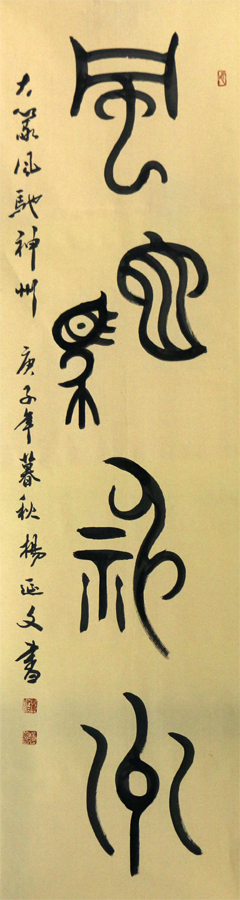 風馳神州
大篆风馳神州 庚子年暮秋楊延文書